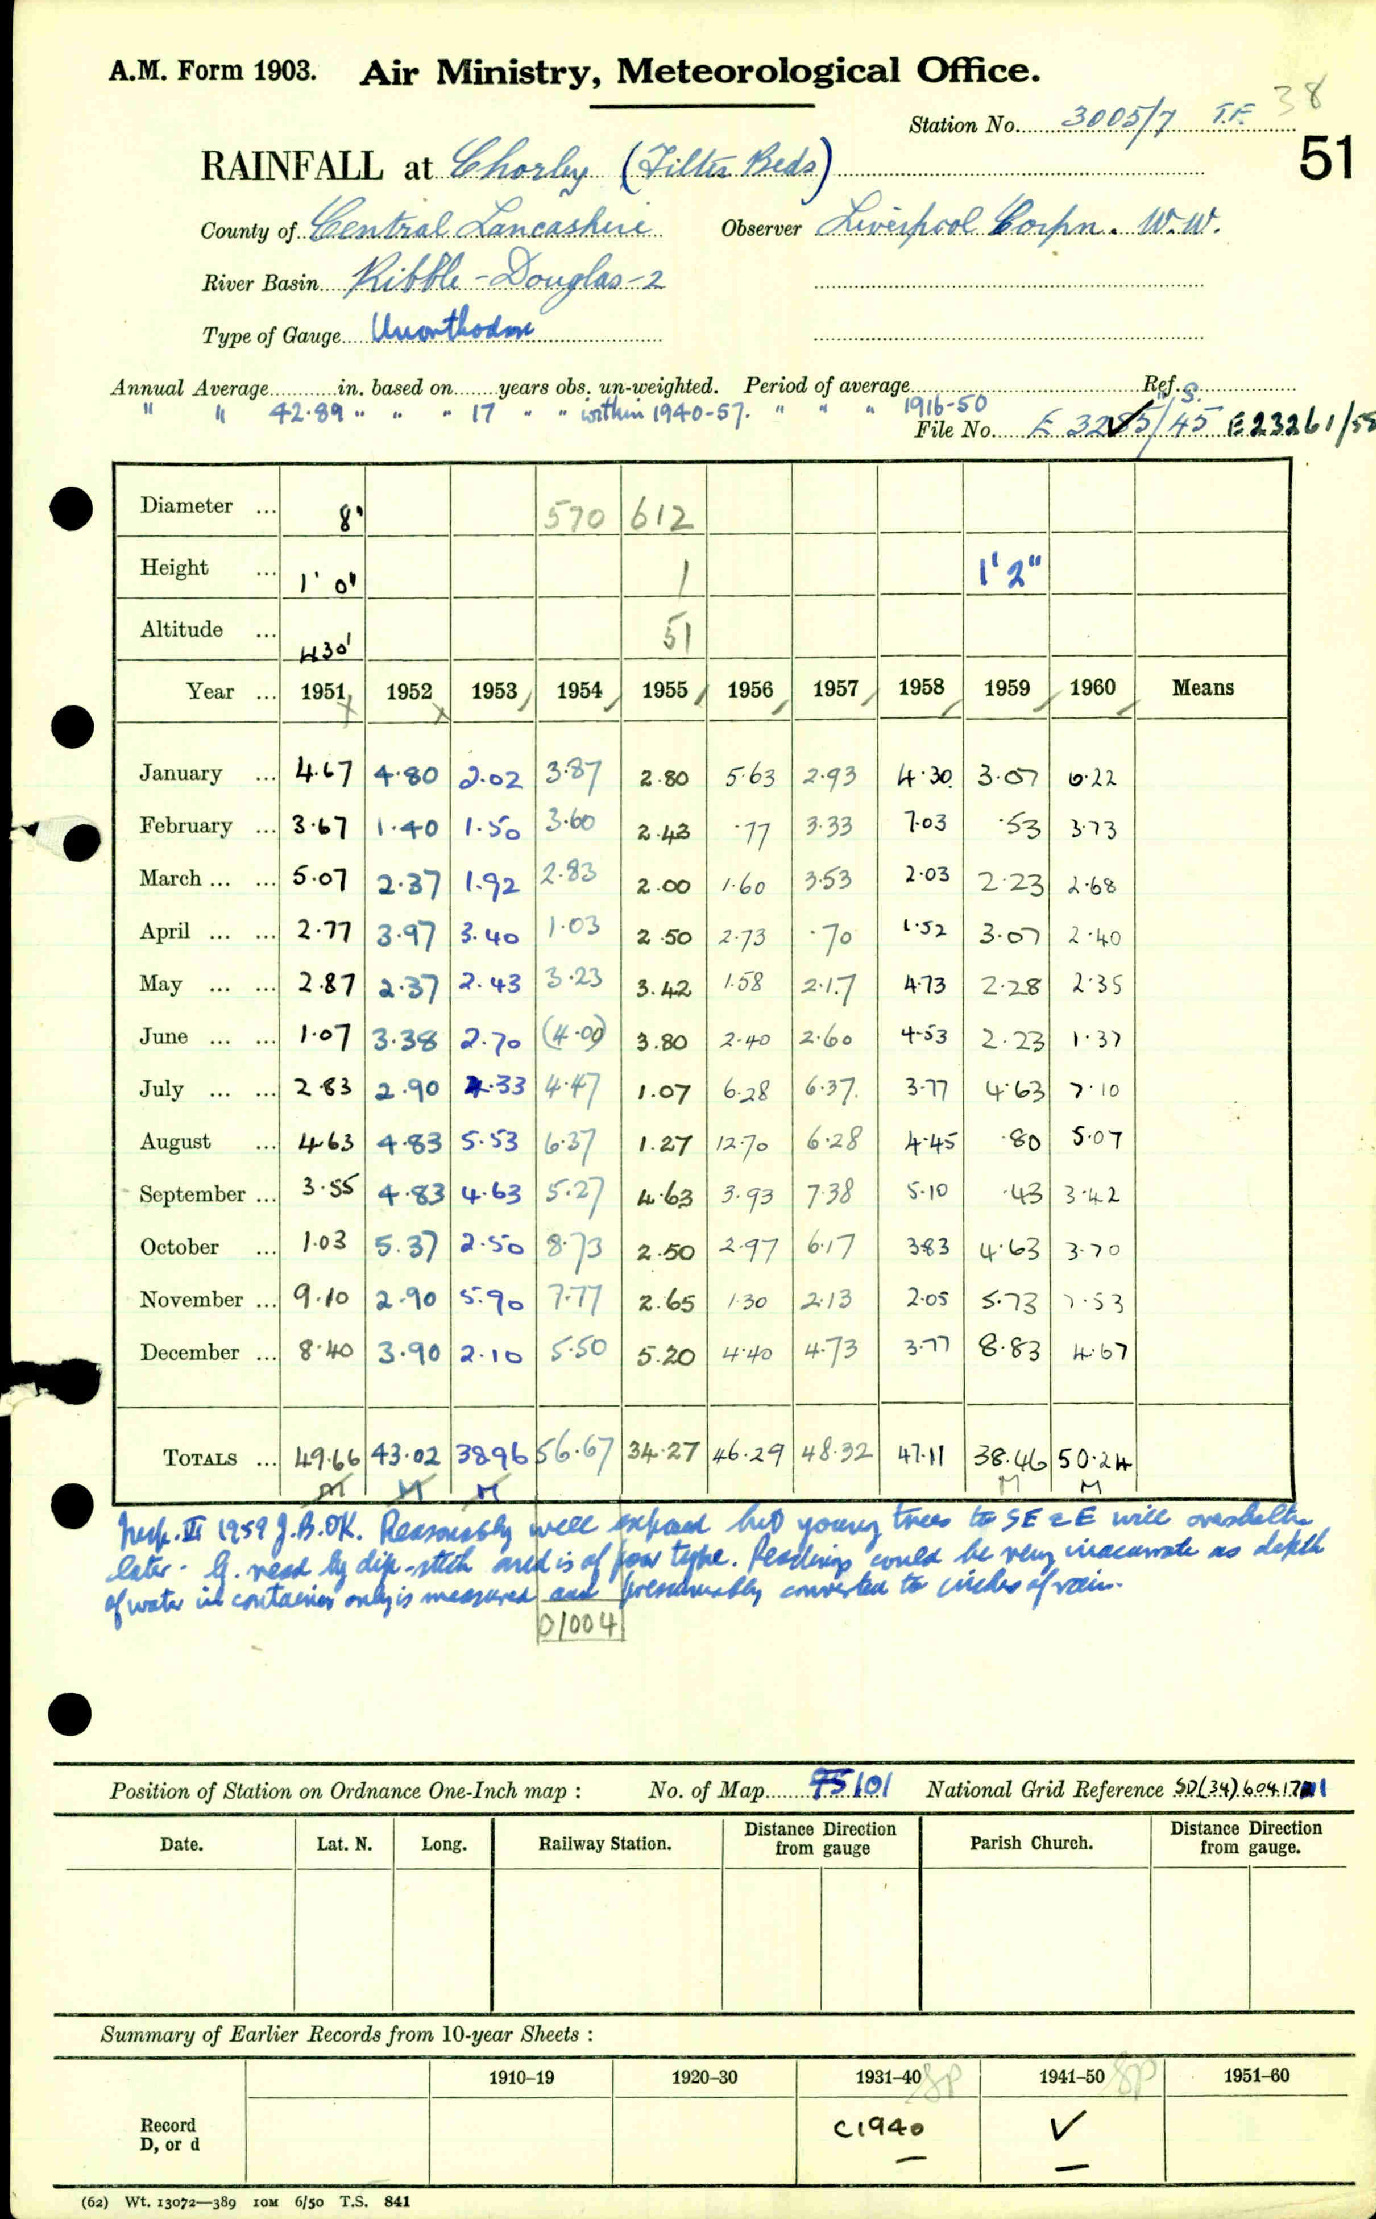 A.M. Form 1903. Air Ministry, Meteorological Office.
38
Station No. 3005/7 T.F.
51
RAINFALL at Chorley (Filter Beds)
County of Central Lancashire Observer Liverpool Corpn. W.W.
River Basin Ribble - Douglas - 2
Type of Gauge Unorthodox
Annual Average in. based on years obs. un-weighted. Period of average Ref. S.
" " 42.89 " " " 17 " " within 1940-57. " " " 1916-50
File No. E 3285/45 E23261/58
Diameter ... 8" 570 612
Height ... 1' 0" 1 1'2"
Altitude ... 430' 51
Year ... 1951 1952 1953 1954 1955 1956 1957 1958 1959 1960 Means
January ... 4.67 4.80 2.02 3.87 2.80 5.63 2.93 4.30 3.07 6.22
February ... 3.67 1.40 1.50 3.60 2.43 .77 3.33 7.03 .53 3.73
March ... ... 5.07 2.37 1.92 2.83 2.00 1.60 3.53 2.03 2.23 2.68
April ... ... 2.77 3.97 3.40 1.03 2.50 2.73 .70 1.52 3.07 2.40
May ... ... 2.87 2.37 2.43 3.23 3.42 1.58 2.17 4.73 2.28 2.35
June ... ... 1.07 3.38 2.70 (4.00) 3.80 2.40 2.60 4.53 2.23 1.37
July ... ... 2.83 2.90 4.33 4.47 1.07 6.28 6.37 3.77 4.63 7.10
August ... 4.63 4.83 5.53 6.37 1.27 12.70 6.28 4.45 .80 5.07
September ... 3.55 4.83 4.63 5.27 4.63 3.93 7.38 5.10 .43 3.42
October ... 1.03 5.37 2.50 8.73 2.50 2.97 6.17 3.83 4.63 3.70
November ... 9.10 2.90 5.90 7.77 2.65 1.30 2.13 2.05 5.73 7.53
December ... 8.40 3.90 2.10 5.50 5.20 4.40 4.73 3.77 8.83 4.67
TOTALS ... 49.66 43.02 38.96 56.67 34.27 46.29 48.32 47.11 38.46 50.24
M M M M M
Insp. III 1959 J.B.OK. Reasonably well exposed but young trees to SE & E will overshelter
later. G. read by dip-stick and is of poor type. Readings could be very inaccurate as depth
of water in container only is measured and presumably converted to inches of rain.
01004
Position of Station on Ordnance One-Inch map : No. of Map 95 101 National Grid Reference SD(34)604171
Date. Lat. N. Long. Railway Station. Distance from gauge Direction Parish Church. Distance from gauge. Direction
Summary of Earlier Records from 10-year Sheets :
1910–19 1920–30 1931–40 SP 1941–50 SP 1951–60
Record D, or d C1940 ✓
(62) Wt. 13072—389 10M 6/50 T.S. 841